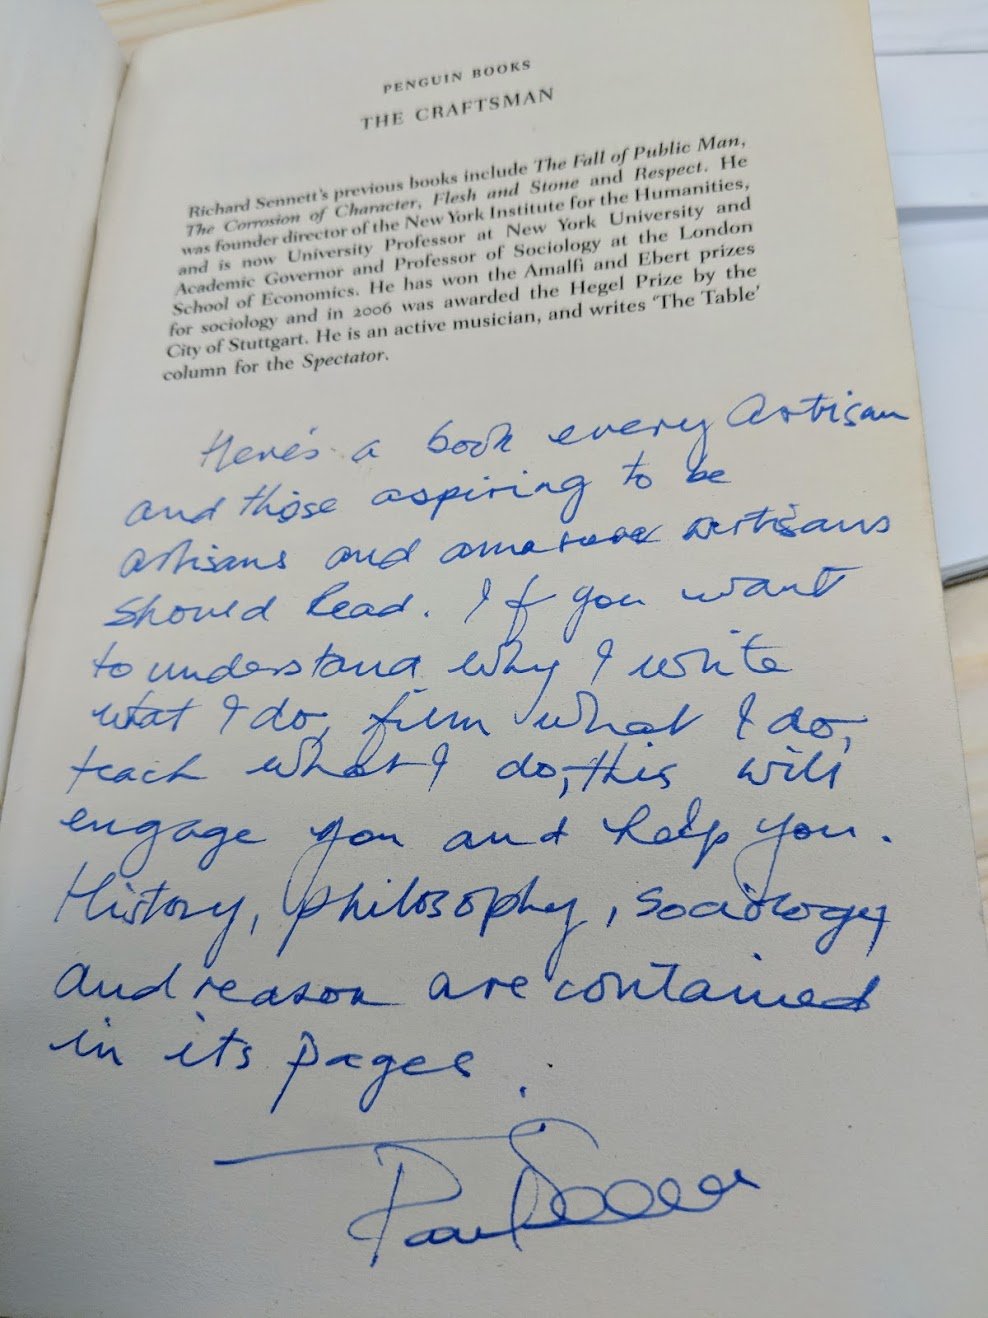 PENGUIN BOOKS
THE CRAFTSMAN
Richard Sennett's previous books include The Fall of Public Man,
The Corrosion of Character, Flesh and Stone and Respect. He
was founder director of the New York Institute for the Humanities,
and is now University Professor at New York University and
Academic Governor and Professor of Sociology at the London
School of Economics. He has won the Amalfi and Ebert prizes
for sociology and in 2006 was awarded the Hegel Prize by the
City of Stuttgart. He is an active musician, and writes 'The Table'
column for the Spectator.
Here's a book every Artisan
and those aspiring to be
artisans and artisans
should read. If you want
to understand why I write
what I do, film what I do,
teach what I do, this will
engage you and help you.
History, philosophy, sociology
and reason are contained
in its pages.
Paul